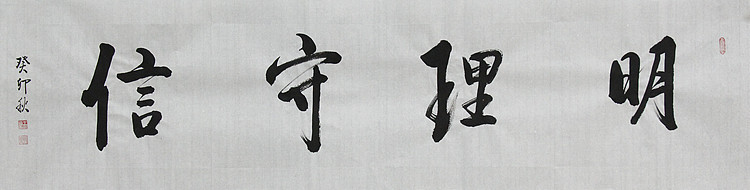 明理守信
癸卯秋